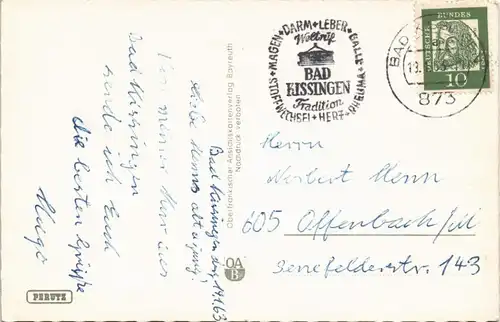 Bad Kissingen, den 14.1.63
Liebe Henns alt u. jung!
Von meiner Kur aus
Bad Kissingen
sende ich Euch
die besten Grüße
Hugo
PERUTZ
Oberfränkischer Ansichtskartenverlag Bayreuth
Nachdruck verboten
OA
B
MAGEN + DARM + LEBER + GALLE + RHEUMA + HERZ + STOFFWECHSEL
Weltruf
BAD
KISSINGEN
Tradition
BAD
873
DEUTSCHE BUNDESPOST
10
Herrn
Norbert Henn
605 Offenbach/M
Senefelderstr. 143